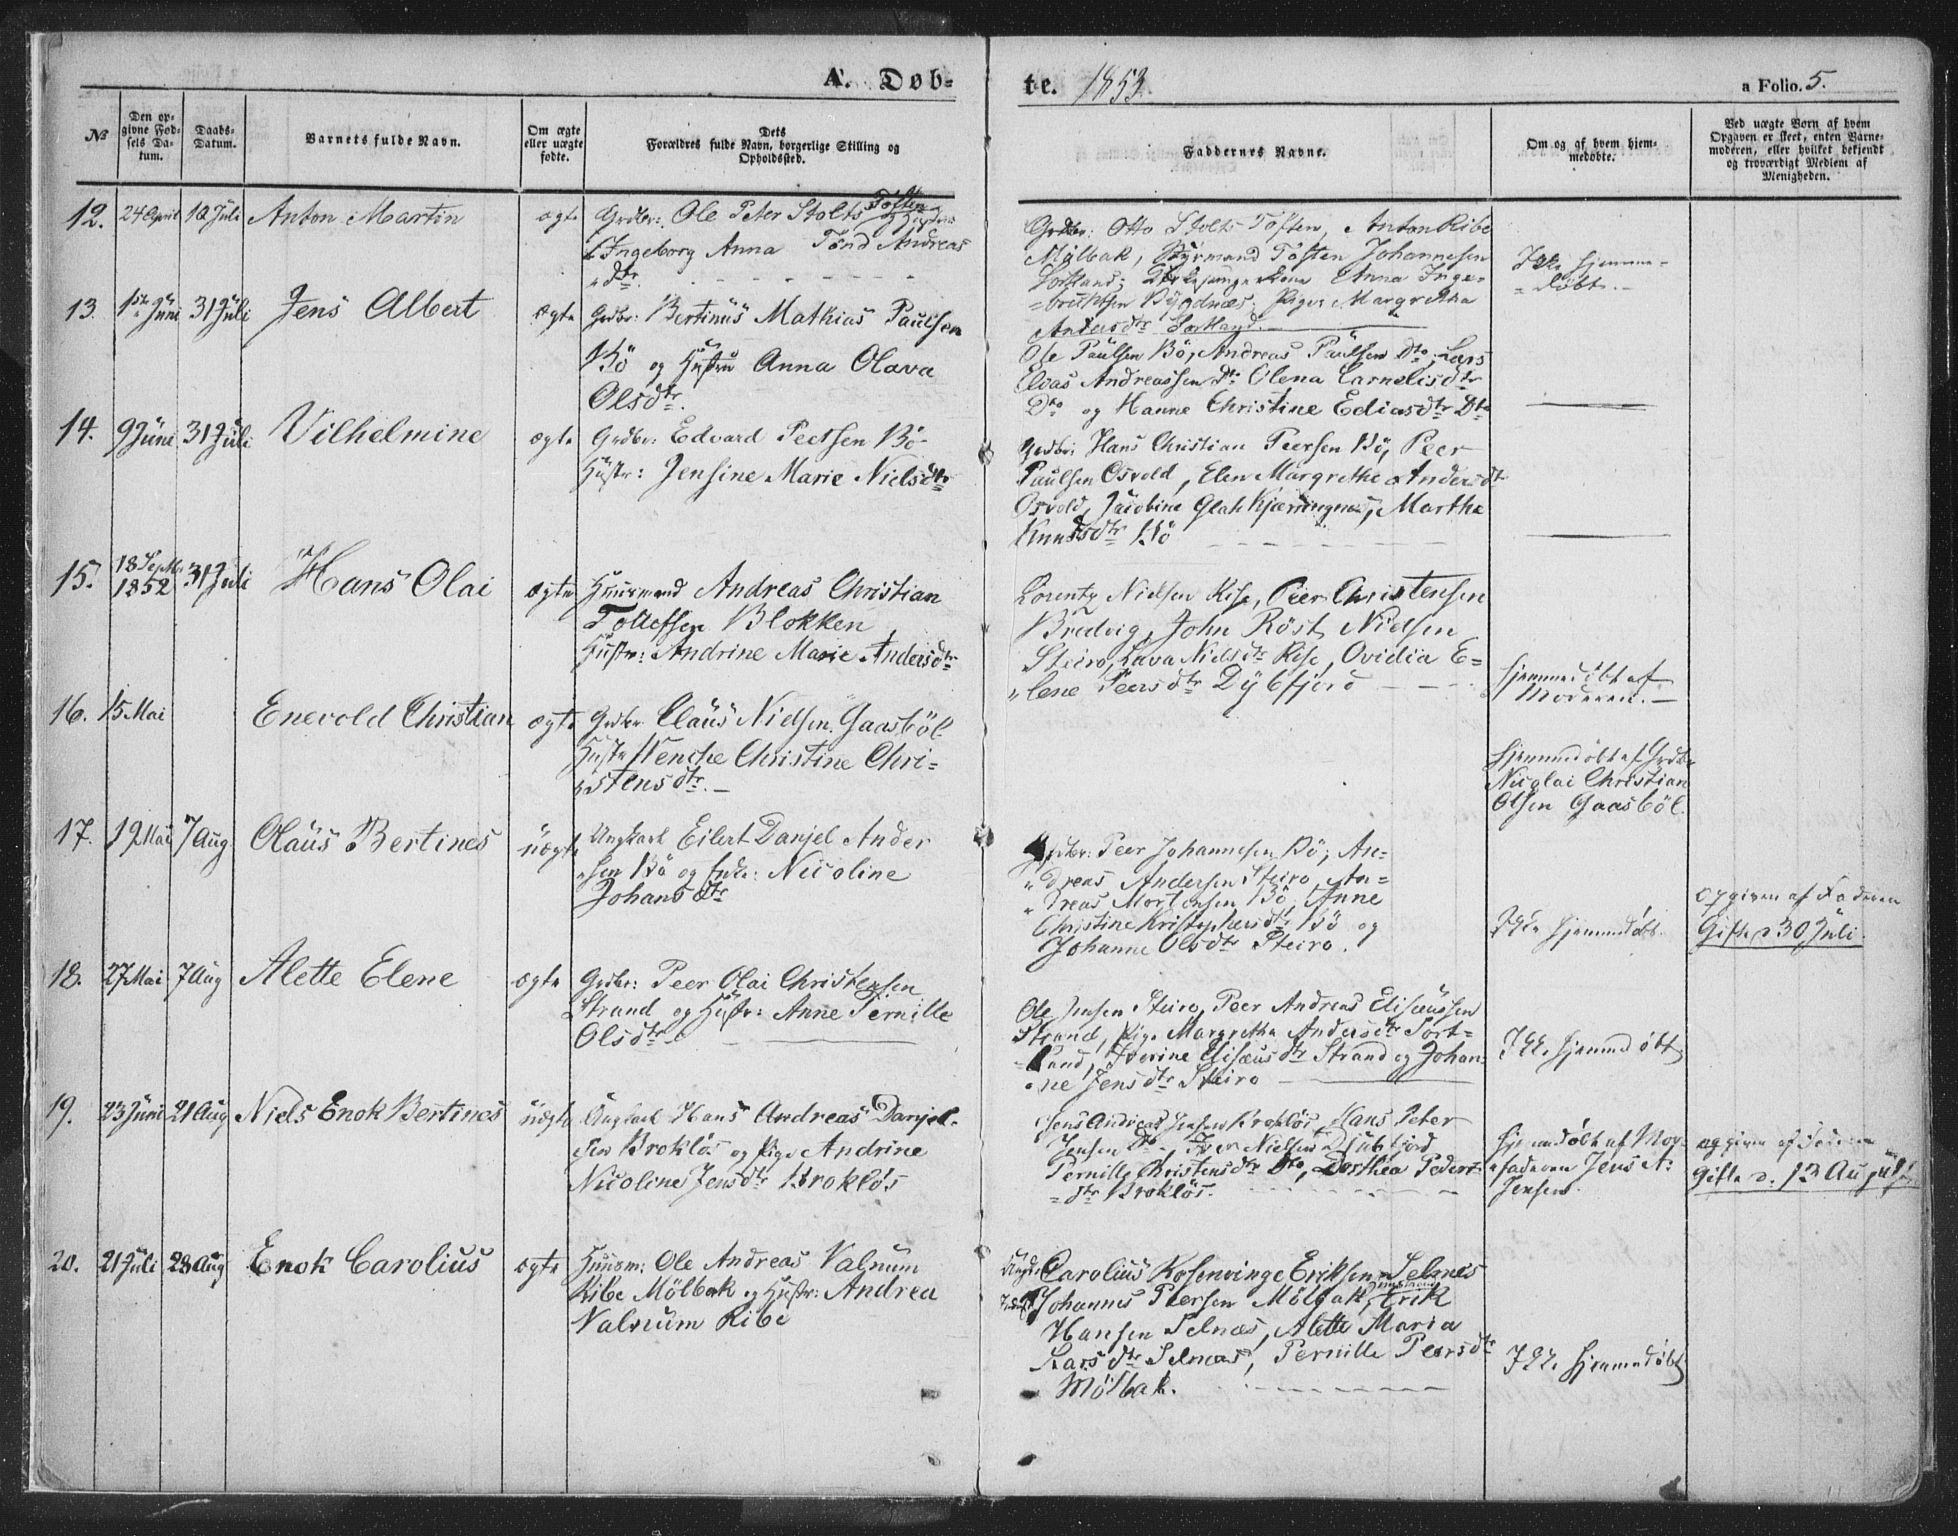 A. Døb-
te. 1853.
a Folio. 5.
No
Den op-
givne Fød-
sels Da-
tum.
Daabs-
Datum.
Barnets fulde Navn.
Om ægte
eller uægte
fødte.
Dets
Forældres fulde Navn, borgerlige Stilling og
Opholdssted.
Faddernes Navne.
Om og af hvem hjem-
medøbte.
Ved uægte Børn af hvem
Opgaven er skeet, enten Barne-
moderen, eller hvilket bekjendt
og troværdigt Medlem af
Menigheden.
12. 24 April 10 Juli Anton Martin ægte Grdbr: Ole Peter Stolts Toften
Ingeborg Anna Tønd Andreas
Dtr.
Grdbr: Otto Stolts Toften, Anton Ribe
Mølbak, Toften Johannesen
Sortland; Anna Inge-
brictsen Bygdnæs; Pige: Margretha
Andersdtr Sortland.
Ikke hjemme-
døbt.
13. 1ste Juni 31 Juli Jens Albert ægte Grdbr: Bertinus Mathias Paulsen
Bö og Hustru Anna Olava
Olsdtr.
Ole Paulsen Bö, Andreas Paulsen Dto, Lars
Elias Andreassen Dto Olena Cornelisdtr
Dto og Hanne Christine Ediasdtr Dto
14. 9 Juni 31 Juli Vilhelmine ægte Grdbr: Edvard Peersen Bö
Hustr: Jensine Marie Nielsdtr
Grdbr: Hans Christian Peersen Bö, Peer
Paulsen Osvold, Elen Margrethe Andersdtr
Osvold, Jacobine Glah Kjærringnes, Martha
Knudsdtr Bö
15. 18 Septbr 1852 31 Juli Hans Olai ægte Huusmand Andreas Christian
Tollefsen Blokken
Hustr: Andrine Marie Andersdtr
Lorentz Nielsen Rise, Peer Christensen
Bredvig, John Röst Nielsen
Steiro, Lava Nielsdtr Rise, Ovidia E-
lene Peersdtr Dybfjord
hjemmedøbt af
Moderen.
16. 15 Mai Enevold Christian ægte Grdbr Claus Nielsen Gaasböl
Hustr Wenche Christine Chri-
stensdtr.
hjemmedøbt af Grdbr
Nicolai Christian
Olsen Gaasböl.
17. 19 Mai 7 Aug Olaus Bertines uægte Ungkarl Eilert Danjel Ander
sen Bö og Enke: Nicoline
Johansdtr
Grdbr: Peer Johannesen Bö, An-
dreas Andersen Steiro, An-
dreas Mortensen Bö, Anne
Christine Kristophersdtr Bö og
Johanne Olsdtr Steiro.
Ikke hjemmedøbt
opgiven af Faderen
Gift d 30 Juli.
18. 27 Mai 7 Aug Alette Elene ægte Grdbr: Peer Olai Christensen
Strand og Hustr: Anne Pernille
Olsdtr
Ole Jensen Steiro, Peer Andreas Elisæussen
Strand, Pige Margretha Andersdtr Sort-
land, Iverine Elisæusdtr Strand og Johan-
ne Jensdtr Steiro
Ikke hjemmedøbt
19. 23 Juni 21 Aug Niels Enok Bertines uægte Ungkarl Hans Andreas Danjel-
sen Brokløs og Pige Andrine
Nicoline Jensdtr Brokløs
Jens Andreas Jensen Brokløs, Hans Peter
Jensen Dto, Iver Nielsen Dybfjord
Pernille Christensdtr Dto, Dorthea Peders-
dtr Brokløs.
hjemmedøbt af Mor-
faderen Jens A.
Jensen.
opgiven af Faderen
Gift d. 13 August
20. 21 Juli 28 Aug Enok Carolius ægte Huusm: Ole Andreas Valnum
Ribe Mölbak og Hustr: Andrea
Valnum Ribe
Carolius Rosenvinge Eriksen Selnes
Johannes Peersen Mölbak, Erik
Hansen Selnæs, Alette Maria
Larsdtr Selnæs, Pernille Peersdtr
Mölbak.
Ikke hjemmedøbt